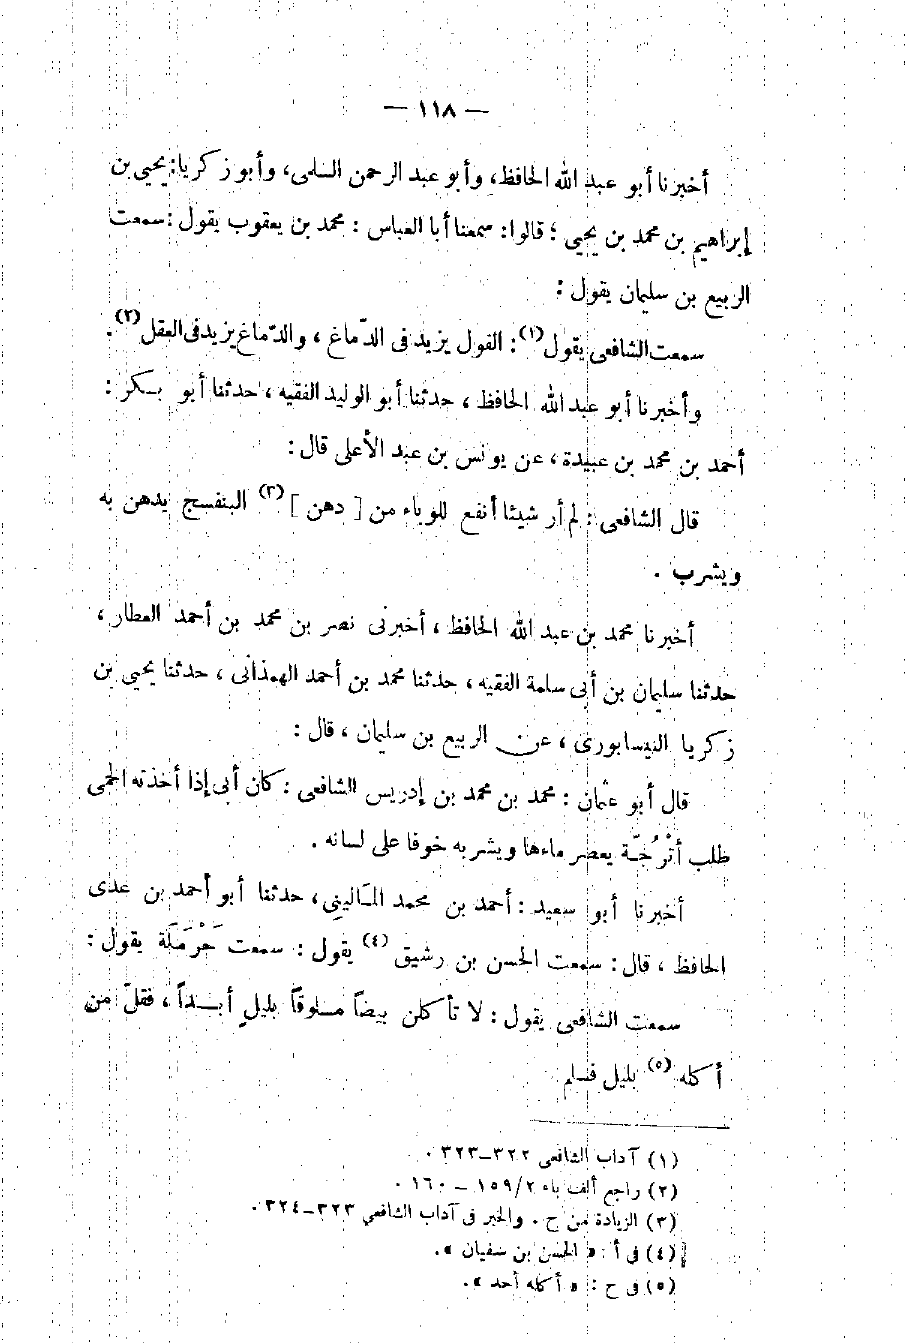 — ١١٨ —
أخبرنا أبو عبد الله الحافظ، وأبو عبد الرحمن السلمى، وأبو زكريا: يحيى بن
إبراهيم بن محمد بن يحيى ؛ قالوا: سمعنا أبا العباس : محمد بن يعقوب يقول : سمعت
الربيع بن سليمان يقول :
سمعت الشافعى يقول (١) : الفول يزيد فى الدّماغ ، والدّماغ يزيد فى العقل (٢) .
وأخبرنا أبو عبد الله الحافظ ، حدثنا أبو الوليد الفقيه ، حدثنا أبو بكر :
أحمد بن محمد بن عبيدة ، عن يونس بن عبد الأعلى قال :
قال الشافعى : لم أر شيئا أنفع للوباء من [ دهن ] (٣) البنفسج يدهن به
ويشرب .
أخبرنا محمد بن عبد الله الحافظ ، أخبرنى نصر بن محمد بن أحمد العطار ،
حدثنا سليمان بن أبى سلمة الفقيه ، حدثنا محمد بن أحمد الهمذانى ، حدثنا يحيى بن
زكريا النيسابورى ، عن الربيع بن سليمان ، قال :
قال أبو عثمان : محمد بن محمد بن إدريس الشافعى : كان أبى إذا أخذته الحمى
طلب أتْرُجّة يعصر ماءها ويشربه خوفا على لسانه .
أخبرنا أبو سعيد : أحمد بن محمد المالينى ، حدثنا أبو أحمد بن عدى
الحافظ ، قال : سمعت الحسن بن رشيق (٤) يقول : سمعت حَرْمَلَة يقول :
سمعت الشافعى يقول : لا تأكلن بيضاً مسلوقاً بليلٍ أبداً ، فقلّ من
أكله (٥) بليل فسلم
(١) آداب الشافعى ٣٢٢-٣٢٣ .
(٢) راجع ألف باء ١٥٩/٢ - ١٦٠ .
(٣) الزيادة من ح . والخبر فى آداب الشافعي ٣٢٣-٣٢٤ .
(٤) فى أ : « الحسن بن سفيان » .
(٥) فى ح : « أكله أحد » .